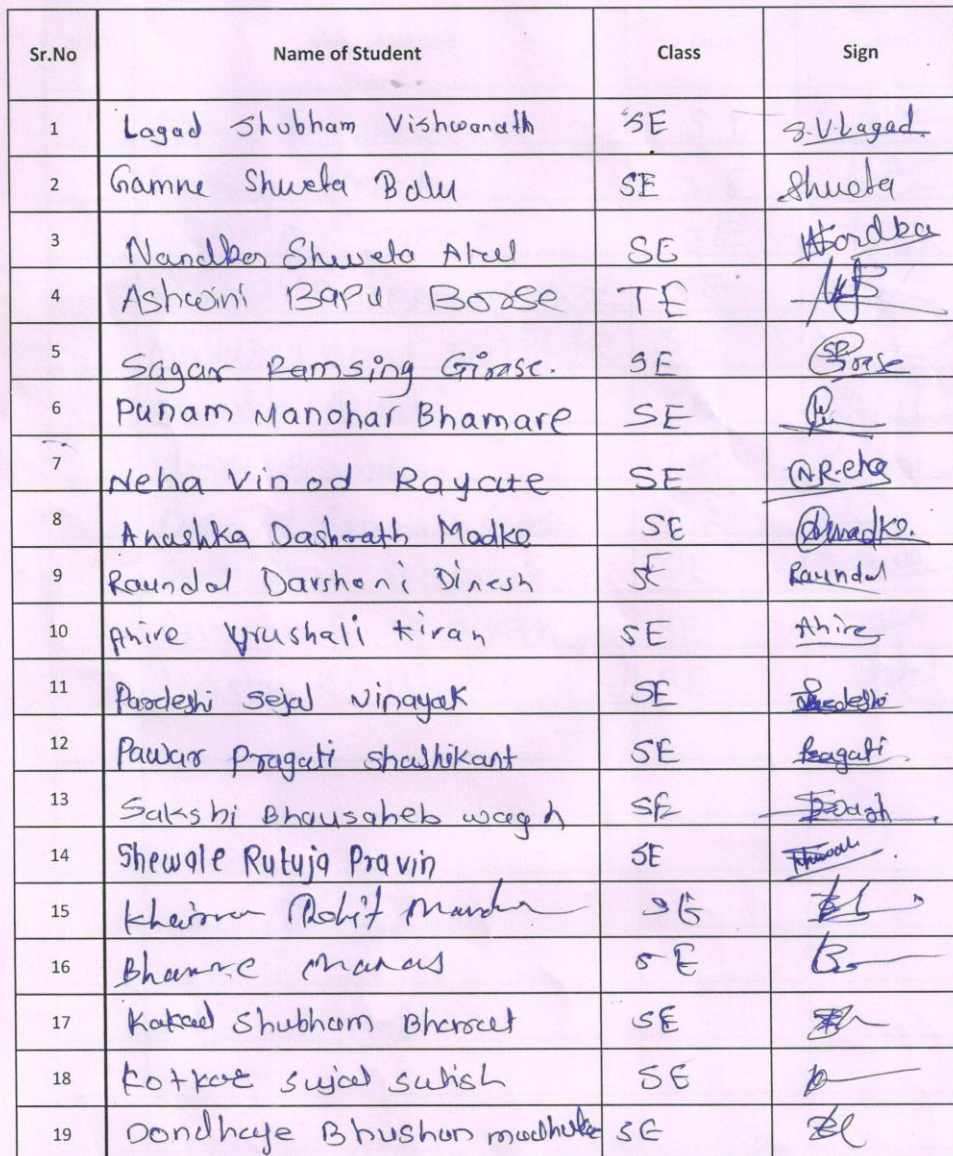 Sr.No Name of Student Class Sign
1 Lagad Shubham Vishwanath SE S.V.Lagad
2 Gamne Shweta Balu SE Shweta
3 Shweta Atul SE
4 Ashwini Bapu Borse TE
5 Sagar Ramsing Girase. SE
6 Punam Manohar Bhamare SE
7 Neha Vinod Rayate SE
8 Anushka Dasharath Madko SE
9 Raundal Darshani Dinesh SE Raundal
10 Ahire Vrushali Kiran SE Ahire
11 Pardeshi Sejal Vinayak SE Pardeshi
12 Pawar Pragati Shashikant SE Pragati
13 Sakshi Bhausaheb wagh SE
14 Shewale Rutuja Pravin SE
15 Rohit SE
16 Manas SE
17 Shubham Bharat SE
18 Kotkar Sujal Satish SE
19 Dondhaye Bhushan SE